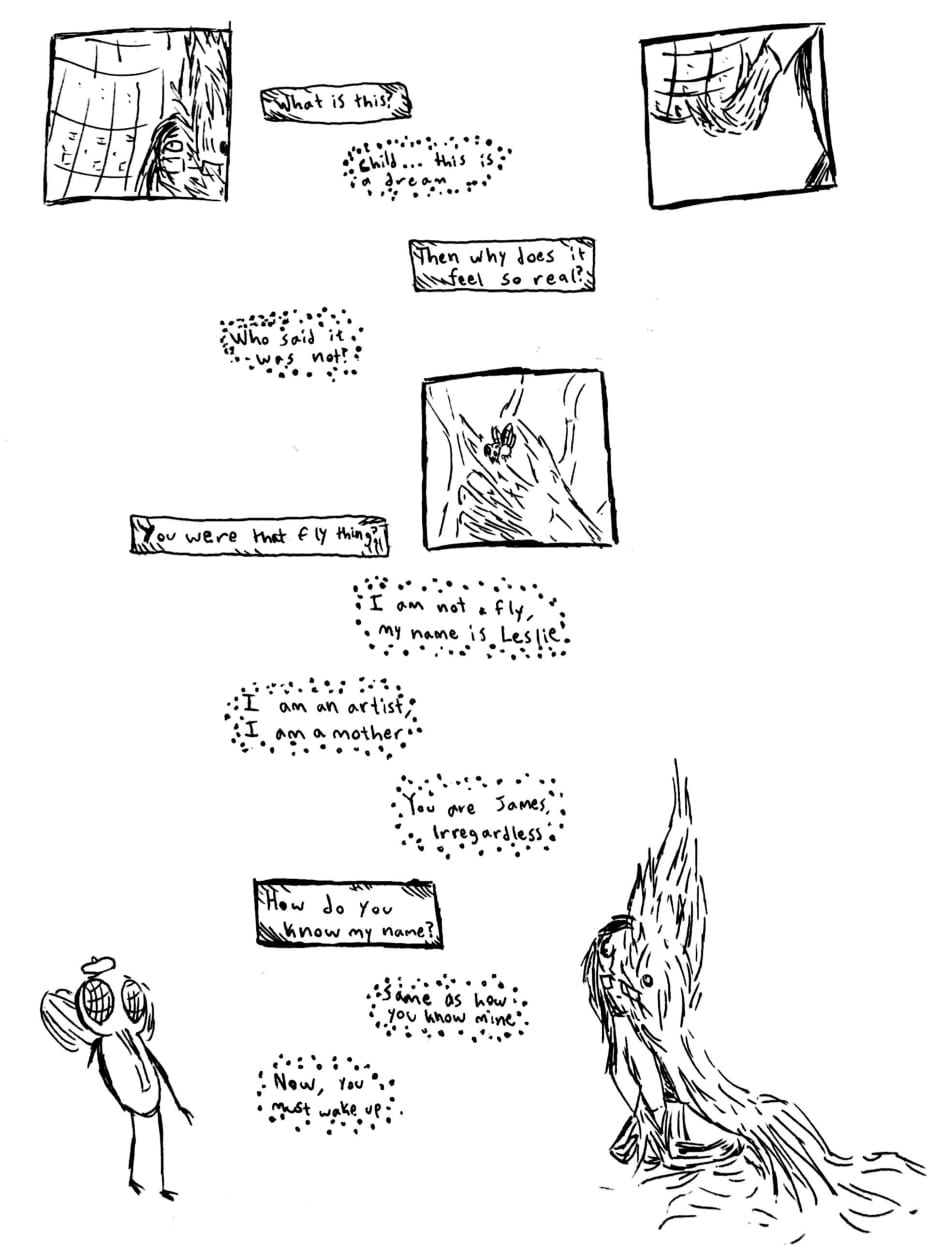 What is this?
Child... this is
a dream
Then why does it
feel so real?
Who said it
was not?
You were that fly thing?!
I am not a fly,
my name is Leslie.
I am an artist,
I am a mother
You are James,
Irregardless
How do you
know my name?
Same as how
you know mine
Now, you
must wake up